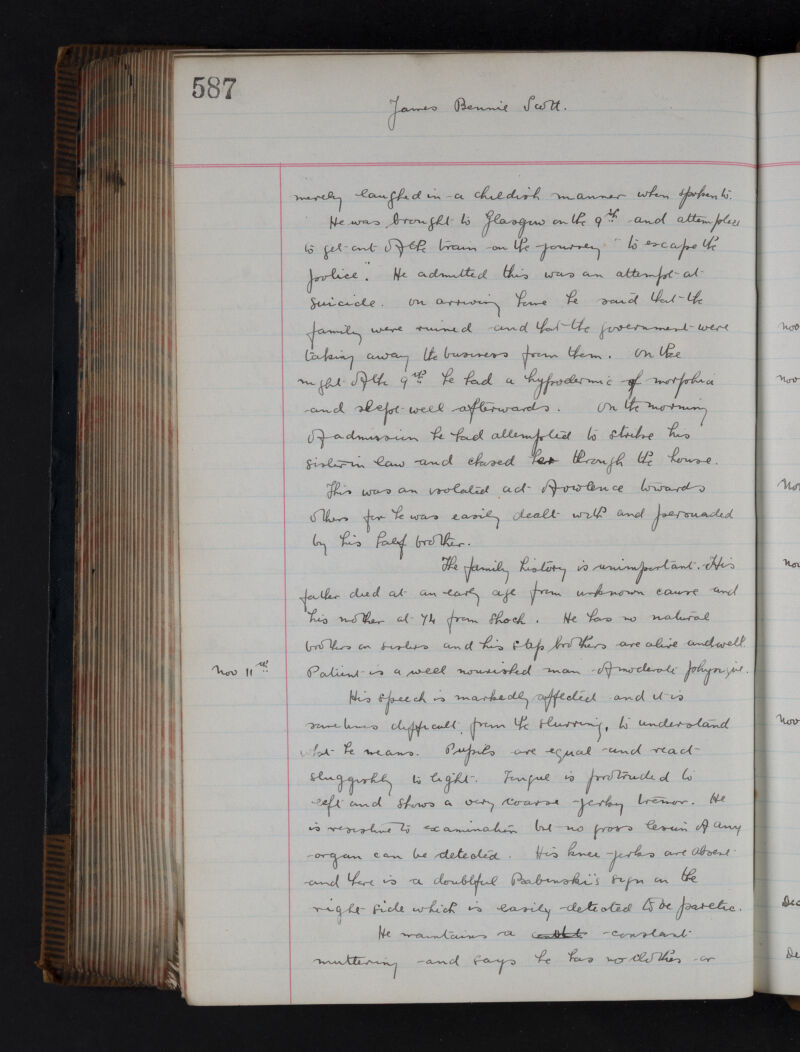 587
James Bennie Scott.
merely laughed in a childish manner when spoken to.
He was brought to Glasgow on the 9th and attempted
to get out of the train on the journey "to escape the
police". He admitted this was an attempt at
suicide. On arriving home he said that the
family were ruined and that the government were
taking away the business from them. On the
night of the 9th he had a hypodermic of morphia
and slept well afterwards. On the morning
of admission he had attempted to strike his
sister in law and chased her through the house.
This was an isolated act of violence towards
others for he was easily dealt with and persuaded
by his half brother.
The family history is unimportant. His
father died at an early age from unknown cause and
his mother at 74 from shock. He has no natural
brothers or sisters and his step brothers are alive and well.
Nov 11th Patient is a well nourished man of moderate physique.
His speech is markedly affected and it is
sometimes difficult, from the slurring, to understand
what he means. Pupils are equal and react
sluggishly to light. Tongue is protruded to
left and shows a very coarse jerky tremor. He
is resistive to examination but no gross lesion of any
organ can be detected. His knee-jerks are absent
and there is a doubtful Babinski's sign on the
right side which is easily detected to be paretic.
He maintains a constant
muttering and says he has no clothes or
Nov
Nov
Nov
Nov
Nov
Dec
De